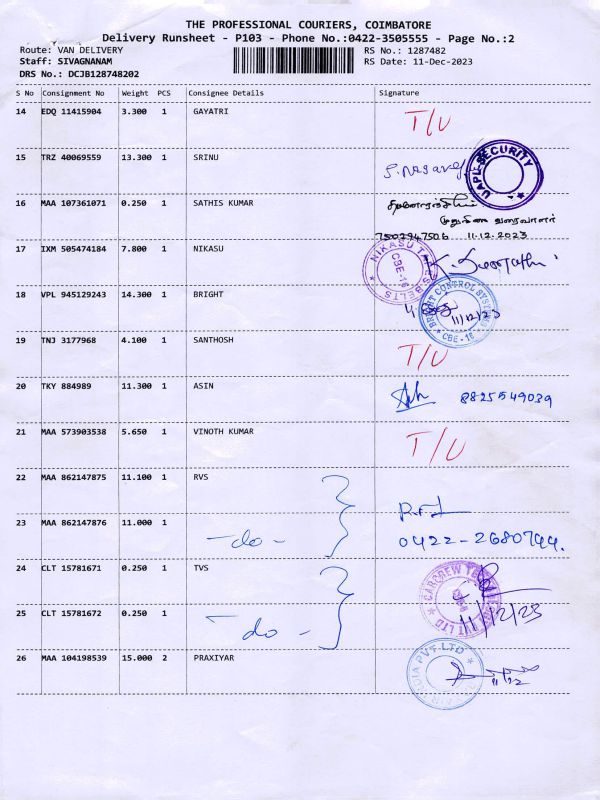 THE PROFESSIONAL COURIERS, COIMBATORE
Delivery Runsheet - P103 - Phone No.:0422-3505555 - Page No.:2
Route: VAN DELIVERY RS No.: 1287482
Staff: SIVAGNANAM RS Date: 11-Dec-2023
DRS No.: DCJB128748202
S No Consignment No Weight PCS Consignee Details Signature
14 EDQ 11415904 3.300 1 GAYATRI T/U
15 TRZ 40069559 13.300 1 SRINU
UAPL-SECURITY
16 MAA 107361071 0.250 1 SATHIS KUMAR
7502947506 11.12.2023
17 IXM 505474184 7.800 1 NIKASU
NIKASU BELTS CBE-16
18 VPL 945129243 14.300 1 BRIGHT 11/12/23
BRIGHT CONTROL SYSTEMS CBE-16
19 TNJ 3177968 4.100 1 SANTHOSH T/U
20 TKY 884989 11.300 1 ASIN 8825549039
21 MAA 573903538 5.650 1 VINOTH KUMAR T/U
22 MAA 862147875 11.100 1 RVS
23 MAA 862147876 11.000 1 -do- 0422-2680744.
24 CLT 15781671 0.250 1 TVS
CARCREW PVT LTD
25 CLT 15781672 0.250 1 -do- 11/12/23
26 MAA 104198539 15.000 2 PRAXIYAR
INDIA PVT LTD